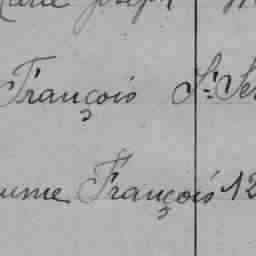 Joseph
François St. Se
ume François 12